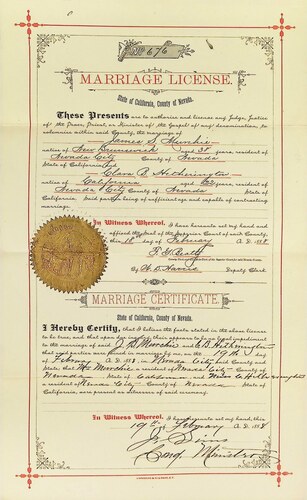 676
MARRIAGE LICENSE.
State of California, County of Nevada.
These Presents are to authorize and license any Judge, Justice
of the Peace, Priest, or Minister of the Gospel of any denomination, to
solemnize within said County, the marriage of
James S.
native of New Brunswick aged 38 years, resident of
Nevada City County of Nevada
State of California and
Clara B. Hetherington
native of California aged years,
resident of Nevada City County of Nevada State of
California. Said parties being of sufficient age and capable of contracting
marriage.
In Witness Whereof, I have hereunto set my hand and
affixed the Seal of the Superior Court of said County,
this 18 day of February A. D.
F. G. Beatty
By Deputy Clerk
MARRIAGE CERTIFICATE.
State of California, County of Nevada.
I Hereby Certify, that I believe the facts stated in the above license
to be true, and that upon due inquiry there appears to be no legal impediment
to the marriage of said J. S. and C. B. Hetherington
that said parties were joined in marriage by me, on the 19th day
of February, A. D. in Nevada City County and
State, that Mr a resident of Nevada City County of
Nevada State of California and Hetherington
a resident of Nevada City County of Nevada State of
California, were present as witnesses of said ceremony.
In Witness Whereof, I have hereunto set my hand, this
19th of February A. D.
J. Sims
Cong. Minister